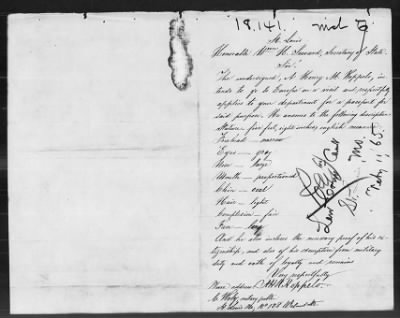 18,141. Mch 6
St. Louis
Honorable Wm H. Seward, Secretary of State.
Sir!
The undersigned, A Henry M. Koppelo, in-
tends to go to Europe on a visit and respectfully
applies to your department for a passport for
said purpose. He answers to the following description
Stature – five feet, eight inches, english measure
Forehead – narrow
Eyes – gray
Nose – large
Mouth – proportioned
Chin – oval
Hair – light
Complexion – fair
Face – long
And he also incloses the necessary proof of his ci-
tizenship, and also of his exemption from military
duty and oath of loyalty and remains
Very respectfully
St. Mo.
Feby 11, 65.
notary public
St Louis Mo, No 128 Walnut Str